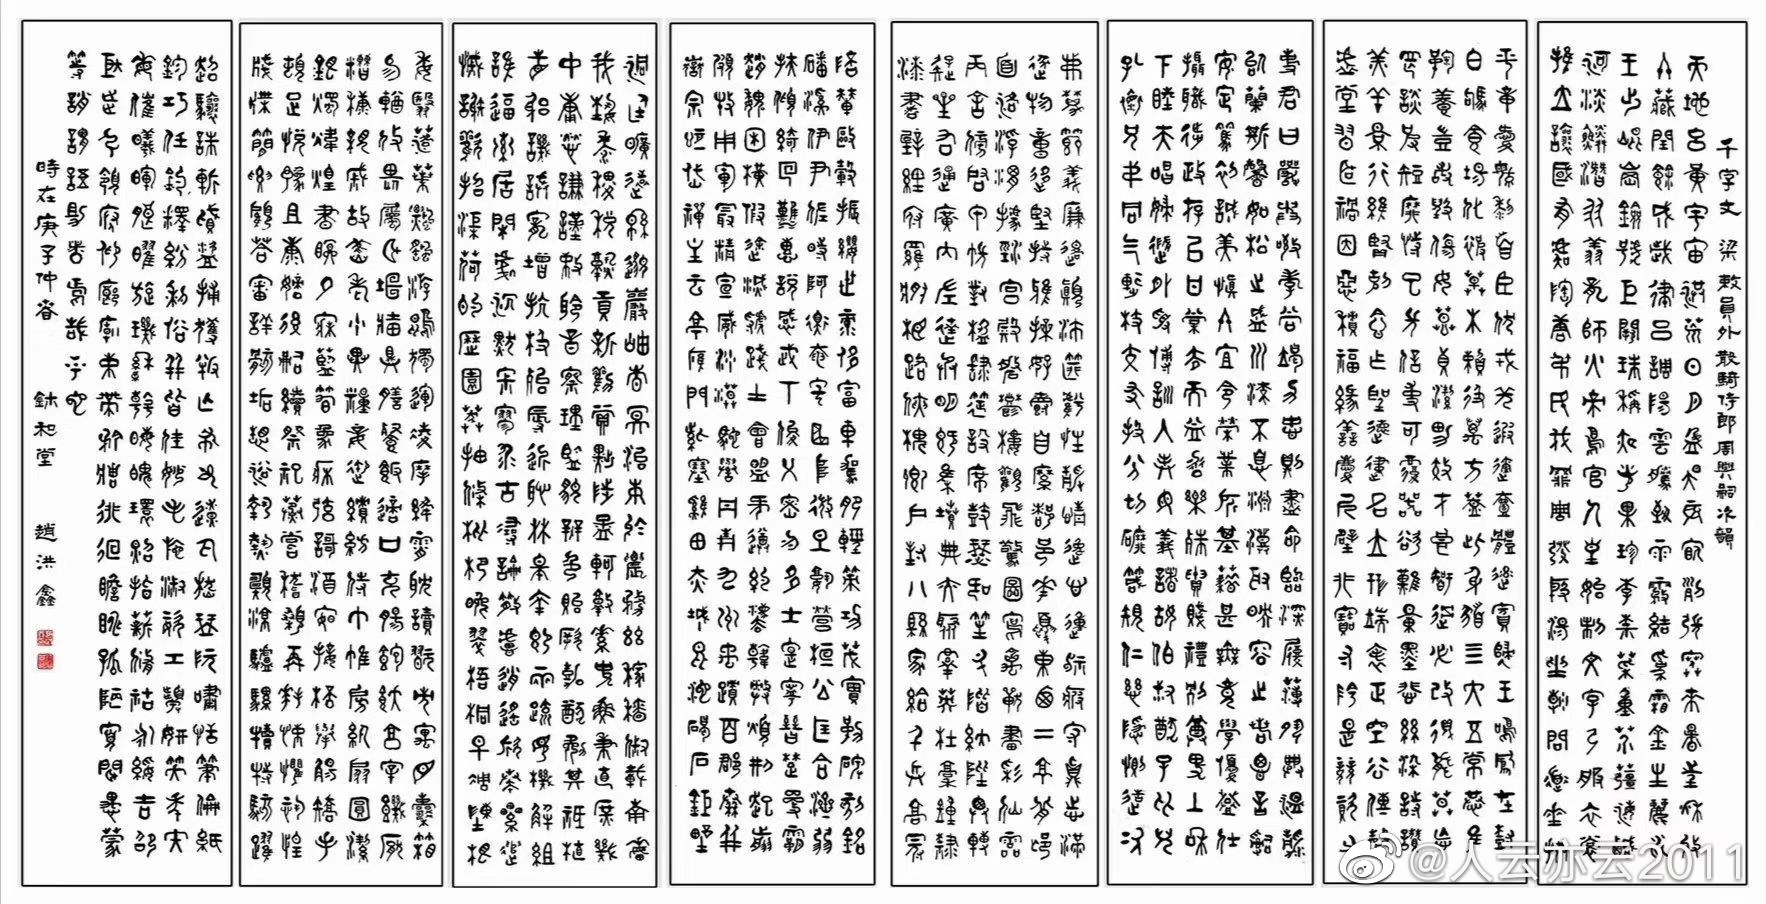 千字文 梁敕員外散騎侍郎周興嗣次韻
天地玄黃宇宙洪荒日月盈昃辰宿列張寒來暑往秋收
冬藏閏餘成歲律呂調陽雲騰致雨露結為霜金生麗水
玉出崑岡劍號巨闕珠稱夜光果珍李柰菜重芥薑海鹹
河淡鱗潛羽翔龍師火帝鳥官人皇始制文字乃服衣裳
推位讓國有虞陶唐弔民伐罪周發殷湯坐朝問道垂拱
平章愛育黎首臣伏戎羌遐邇壹體率賓歸王鳴鳳在樹
白駒食場化被草木賴及萬方蓋此身髮四大五常恭惟
鞠養豈敢毀傷女慕貞潔男效才良知過必改得能莫忘
罔談彼短靡恃己長信使可覆器欲難量墨悲絲染詩讚
羔羊景行維賢克念作聖德建名立形端表正空谷傳聲
虛堂習聽禍因惡積福緣善慶尺璧非寶寸陰是競資父
事君曰嚴與敬孝當竭力忠則盡命臨深履薄夙興溫凊
似蘭斯馨如松之盛川流不息淵澄取映容止若思言辭
安定篤初誠美慎終宜令榮業所基籍甚無竟學優登仕
攝職從政存以甘棠去而益詠樂殊貴賤禮別尊卑上和
下睦夫唱婦隨外受傅訓入奉母儀諸姑伯叔猶子比兒
孔懷兄弟同氣連枝交友投分切磨箴規仁慈隱惻造次
弗離節義廉退顛沛匪虧性靜情逸心動神疲守真志滿
逐物意移堅持雅操好爵自縻都邑華夏東西二京背邙
面洛浮渭據涇宮殿盤鬱樓觀飛驚圖寫禽獸畫彩仙靈
丙舍傍啟甲帳對楹肆筵設席鼓瑟吹笙升階納陛弁轉
疑星右通廣內左達承明既集墳典亦聚群英杜稿鍾隸
漆書壁經府羅將相路俠槐卿戶封八縣家給千兵高冠
陪輦驅轂振纓世祿侈富車駕肥輕策功茂實勒碑刻銘
磻溪伊尹佐時阿衡奄宅曲阜微旦孰營桓公匡合濟弱
扶傾綺回漢惠說感武丁俊乂密勿多士寔寧晉楚更霸
趙魏困橫假途滅虢踐土會盟何遵約法韓弊煩刑起翦
頗牧用軍最精宣威沙漠馳譽丹青九州禹跡百郡秦并
嶽宗恒岱禪主云亭雁門紫塞雞田赤城昆池碣石鉅野
洞庭曠遠綿邈巖岫杳冥治本於農務茲稼穡俶載南畝
我藝黍稷稅熟貢新勸賞黜陟孟軻敦素史魚秉直庶幾
中庸勞謙謹敕聆音察理鑒貌辨色貽厥嘉猷勉其祗植
省躬譏誡寵增抗極殆辱近恥林皋幸即兩疏見機解組
誰逼索居閒處沉默寂寥求古尋論散慮逍遙欣奏累遣
慼謝歡招渠荷的歷園莽抽條枇杷晚翠梧桐早凋陳根
委翳落葉飄颻遊鵾獨運凌摩絳霄耽讀翫市寓目囊箱
易輶攸畏屬耳垣牆具膳餐飯適口充腸飽飫烹宰飢厭
糟糠親戚故舊老少異糧妾御績紡侍巾帷房紈扇圓潔
銀燭煒煌晝眠夕寐藍筍象床弦歌酒宴接杯舉觴矯手
頓足悅豫且康嫡後嗣續祭祀蒸嘗稽顙再拜悚懼恐惶
牋牒簡要顧答審詳骸垢想浴執熱願涼驢騾犢特駭躍
超驤誅斬賊盜捕獲叛亡布射僚丸嵇琴阮嘯恬筆倫紙
鈞巧任釣釋紛利俗並皆佳妙毛施淑姿工顰妍笑年矢
每催曦暉朗曜旋璣懸斡晦魄環照指薪修祜永綏吉劭
矩步引領俯仰廊廟束帶矜莊徘徊瞻眺孤陋寡聞愚蒙
等誚謂語助者焉哉乎也
時在庚子仲春 和堂 趙洪鑫
@人云亦云2011